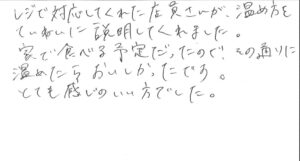 レジで対応してくれた店員さんが、温め方を
ていねいに説明してくれました。
家で食べる予定だったので、その通りに
温めたらおいしかったです。
とても感じのいい方でした。